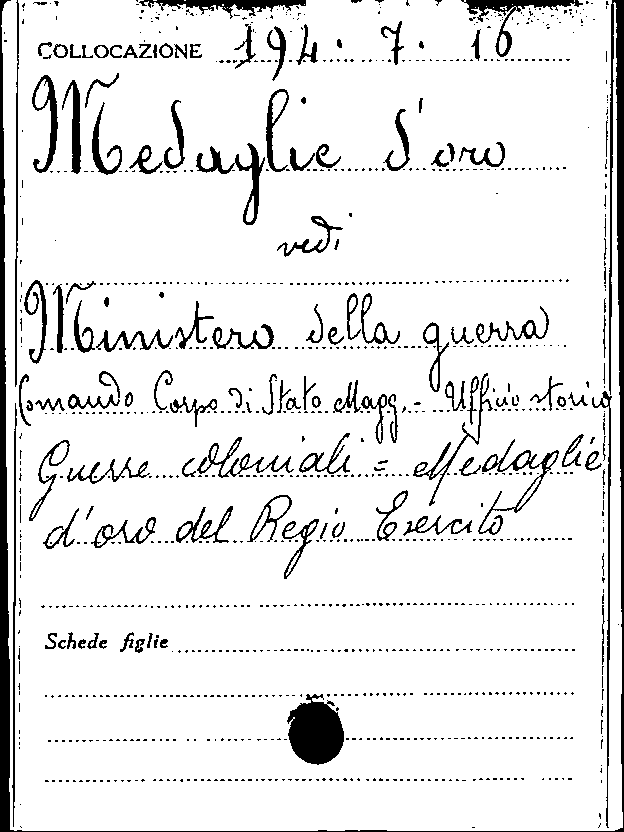 COLLOCAZIONE 194.7.16
Medaglie d'oro
vedi
Ministero della guerra
Comando Corpo di Stato Magg. - Ufficio storico
Guerre coloniali = Medaglie
d'oro del Regio Esercito
Schede figlie